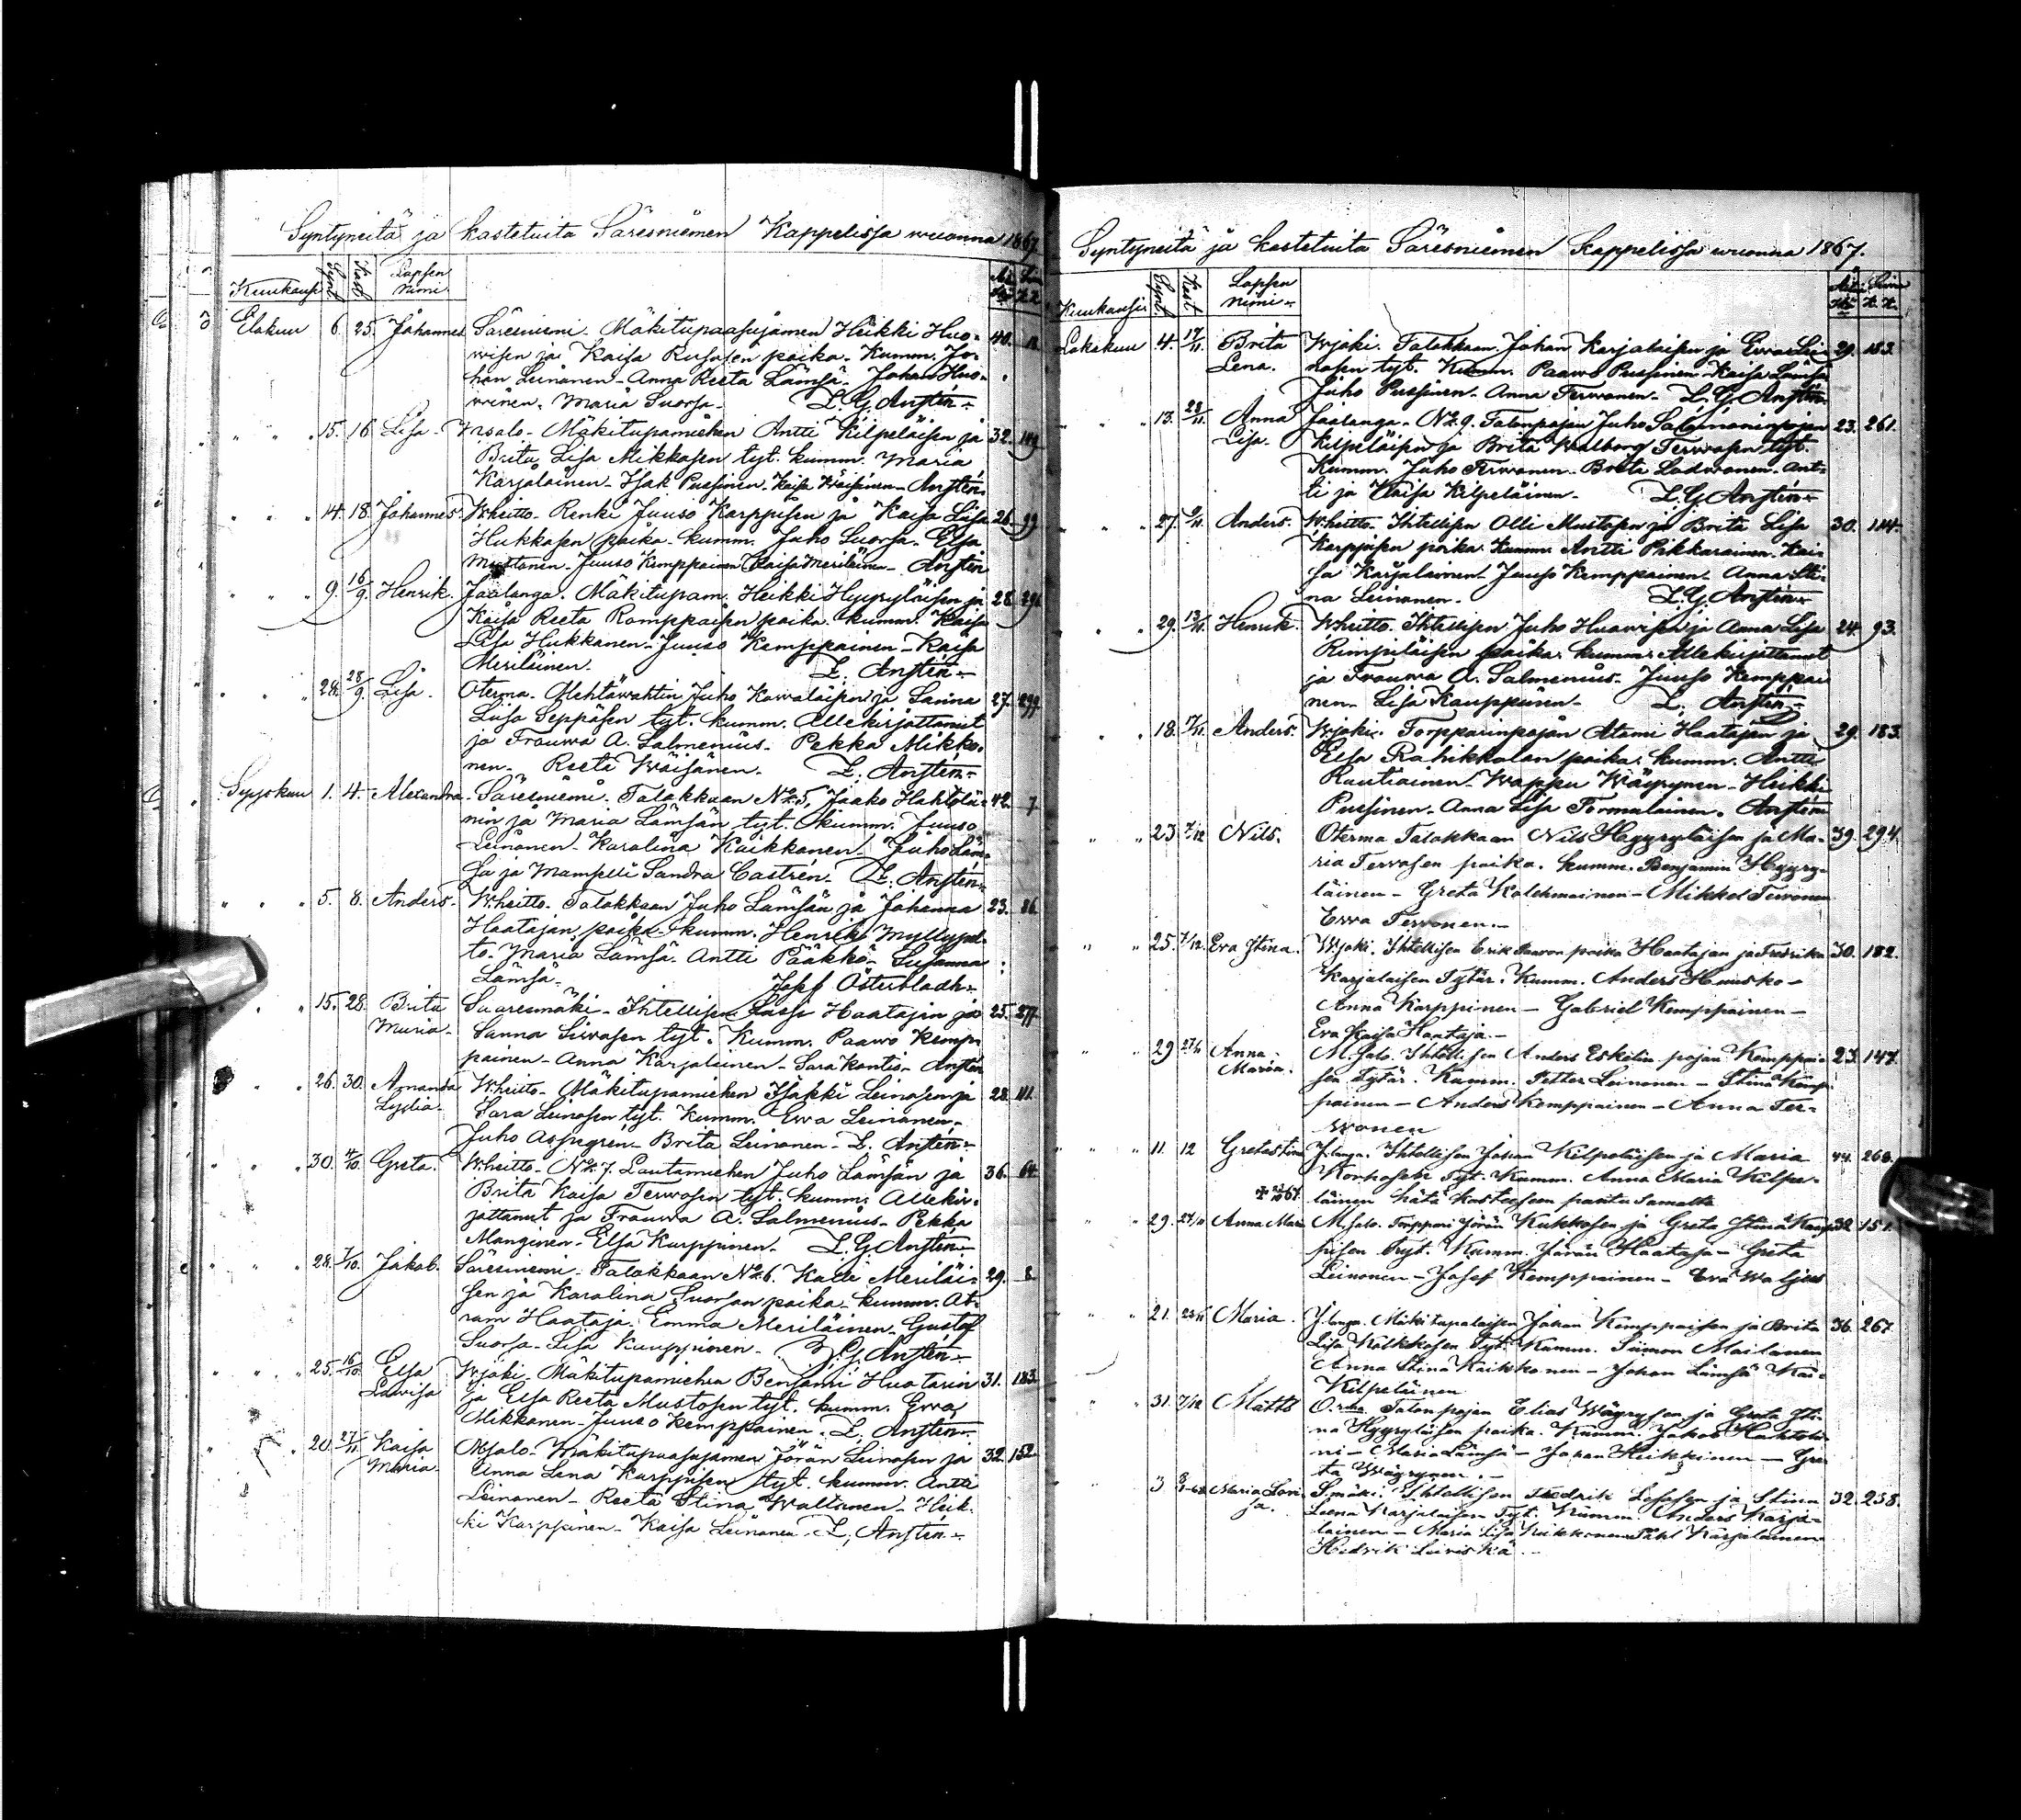 Syntyneitä ja kastetuita Säresniemen Kappelissa wuonna 1867
Kuukausi Synt Kast Lapsen nimi
Elokuu 6. 25. Johannes Säresniemi. Mäkitupaasujamen Heikki Huo- 40.
wisen ja Kaisa Rusasen poika. Kumm. Jo-
han Leinonen - Anna Reeta Lämsä - Johan Huo-
winen. Maria Suorsa. L. G. Anstén.
" " 15. 16. Lisa. Mäkitupamiehen Antti Kilpeläisen ja 32. 149
Brita Lisa Mikkosen tyt. kumm. Maria
Karjalainen - Isak Pussinen - Kaisa Wäisänen - Anstén.
" " 14. 18. Johannes. Wheitto. Renki Juuso Karppisen ja Kaisa Lisa 26. 99
Hukkasen poika. kumm. Juho Suorsa. Elsa
Mustonen - Juuso Kemppainen Kaisa Meriläinen - Anstén
" " 9. 16/9. Henrik. Jaalanga. Mäkitupam. Heikki Hyyryläisen ja 28. 291
Kaisa Reeta Romppaisen poika. kumm. Kaisa
Lisa Hukkanen - Juuso Kemppainen - Kaisa
Meriläinen. L. Anstén.
" " 28. 28/9. Lisa. Oterma. Mehtäwahtin Juho Kawaläisen ja Sanna 27. 299
Luisa Seppäsen tyt. kumm. Allekirjottanut
ja Frouwa A. Salmenius. Pekka Mikko-
nen - Reeta Wäisänen. L. Anstén.
Syyskuu 1. 4. Alexandra. Säresniemi. Talokkaan No 5, Jaako Hahtolai- 42. 7
nin ja Maria Lämsän tyt. kumm. Juuso
Leinonen - Karolina Kaikkonen. Juho Läm-
sä ja Mamselli Sandra Castrén. L. Anstén.
" " 5. 8. Anders. Wheitto. Talokkaan Juho Lämsän ja Johanna 23. 86
Haatajan, poika. kumm. Henrik Myllyaho-
to. Maria Lämsä. Antti Pääkkö - Susanna
Lämsä. Jos. Österbladh.
" " 15. 28. Brita Maria. Suaresmäki - Ihtellisen Lassi Haatajin ja 25. 277
Sanna Siirosen tyt. Kumm. Paawo Kemp-
painen - Anna Karjalainen - Sara Kontio - Anstén
" " 26. 30. Amanda Lydia. Wheitto - Mäkitupamiehen Isakki Leinosen ja 28. 111.
Sara Leinosen tyt. Kumm. Ewa Leinonen -
Juho Aspegrén - Brita Leinonen - L. Anstén.
" " 30. 4/10. Greta. Wheitto - No 7. Lautamiehen Juho Lämsän ja 36. 64.
Brita Kaisa Terwosen tyt. kumm. Allekir-
jottanut ja Frouwa A. Salmenius - Pekka
Manginen - Elsa Karppinen. L. G. Anstén.
" " 28. 7/10. Jakob. Säresniemi - Talokkaan No 6. Kalle Meriläi- 29. 8.
sen ja Karolina Suorsan poika. kumm. At-
ram Haataja. Emma Meriläinen - Gustaf
Suorsa - Lisa Kauppinen. L. G. Anstén.
" " 25. 16/10. Elsa Lowisa Wjoki - Mäkitupamiehen Benjami Huotarin 31. 183.
ja Elsa Reeta Mustosen tyt. kumm. Ewa
Mikkonen - Juuso Kemppainen. L. Anstén.
" " 20. 27/11. Kaisa Maria. Msalo - Mäkitupaasujamen Jörän Leinosen ja 32. 152
Anna Lena Karppisen tyt. kumm. Antti
Leinonen - Reeta Stina Waltanen - Heik-
ki Karppinen - Kaisa Leinonen. L. Anstén.
Syntyneitä ja kastetuita Säresniemen Kappelissa wuonna 1867.
Kuukausi Synt Kast Lapsen nimi.
Lokakuu 4. 17/11. Brita Lena. Wjoki. Talokkaan Johan Karjalaisen ja Ewa Lei- 29. 183.
nosen tyt. Kumm. Paawo Pussinen - Kaisa Lämsä
Juho Pussinen - Anna Terwonen - L. G. Anstén.
" " 13. 28/11. Anna Lisa. Jaalanga - No 9. Talonpojan Juho Salomoninpojan 23. 261.
Kilpeläisen ja Brita Walborg Terwosen tyt.
Kumm. Juho Terwonen. Brita Ladwonen. Ant-
ti ja Kaisa Kilpeläinen. L. G. Anstén.
" " 27. Anders. Wheitto. Ihtellisen Olli Mustosen ja Brita Lisa 30. 114.
Karppisen poika. Kumm. Antti Pikkarainen. Kai-
sa Karjalainen - Juuso Kemppainen - Anna Sti-
na Leinonen. L. G. Anstén.
" " 29. 13/11. Henrik. Wheitto. Ihtellisen Juho Huowisen ja Anna Lisa 24. 93.
Rimpiläisen poika. kumm. Allekirjottanut
ja Frouwa A. Salmenius. Juuso Kemppai-
nen - Lisa Kauppinen - L. Anstén.
" " 18. 17/11. Anders. Wjoki. Torpparinpojan Atami Haatajan ja 29. 183.
Elsa Rahikkalan poika. kumm. Antti
Rautiainen - Wappu Wäyrynen - Heikki
Pussinen - Anna Lisa Tormalainen. Anstén
" " 23. 7/12. Nils. Oterma Talokkaan Nils Hyyryläisen ja Ma- 39. 294.
ria Terwosen poika. kumm. Benjamin Hyyry-
läinen - Greta Kolehmainen - Mikkel Terwonen
Ewa Terwonen.
" " 25. 7/12. Eva Stina. Wjoki. Ihtellisen Erik Paawon poika Haatajan ja Fredrika 30. 182.
Karjalaisen Tytär. Kumm. Anders Huusko -
Anna Karppinen - Gabriel Kemppainen -
Eva Kaisa Haataja.
" " 29 27/11 Anna Maria. M.salo. Ihtellisen Anders Eskelin pojan Kemppai- 23. 147.
sen tytär. Kumm. Petter Leinonen - Stina Kemp-
painen - Anders Kemppainen - Anna Ter-
wonen
" " 11. 12 Greta Stina J.langa. Ihtellisen Johan Kilpeläisen ja Maria 44. 260.
Konkosen Tyt. Kumm. Anna Maria Kilpe-
läinen hätä kasteesen pantu Samalta
" " 29. 27/11 Anna Mar. M.salo. Torppari Jörän Kukkosen ja Greta Stina Kemp- 32. 151.
pisen Tyt. Kumm. Jörän Haataja - Greta
Leinonen - Josef Kemppainen - Eva Waljus
" " 21. Maria. J.langa. Mäkitupalaisen Johan Kemppaisen ja Brita 36. 267
Lisa Kolkkosen Tyt. Kumm. Simon Moilanen
Anna Stina Kaikkonen - Johan Lämsä Kai-
Kilpeläinen
" " 31. 7/12 Matts O.rma Talonpojan Elias Wäyrysen ja Greta Sti-
na Hyyryläisen poika. Kumm. Jakob Hahtola-
ni - Maria Lämsä - Johan Heikkinen - Gre-
ta Wäyrynen.
" " 3 Maria Lovi- sa. S.mäki. Ihtellisen Fredrik Lesosen ja Stina 32. 258.
Leena Karjalaisen Tyt. Kumm. Anders Karja-
lainen - Maria Lisa Kaikkonen Pähl Karjalainen
Hedrik Leiviskä.